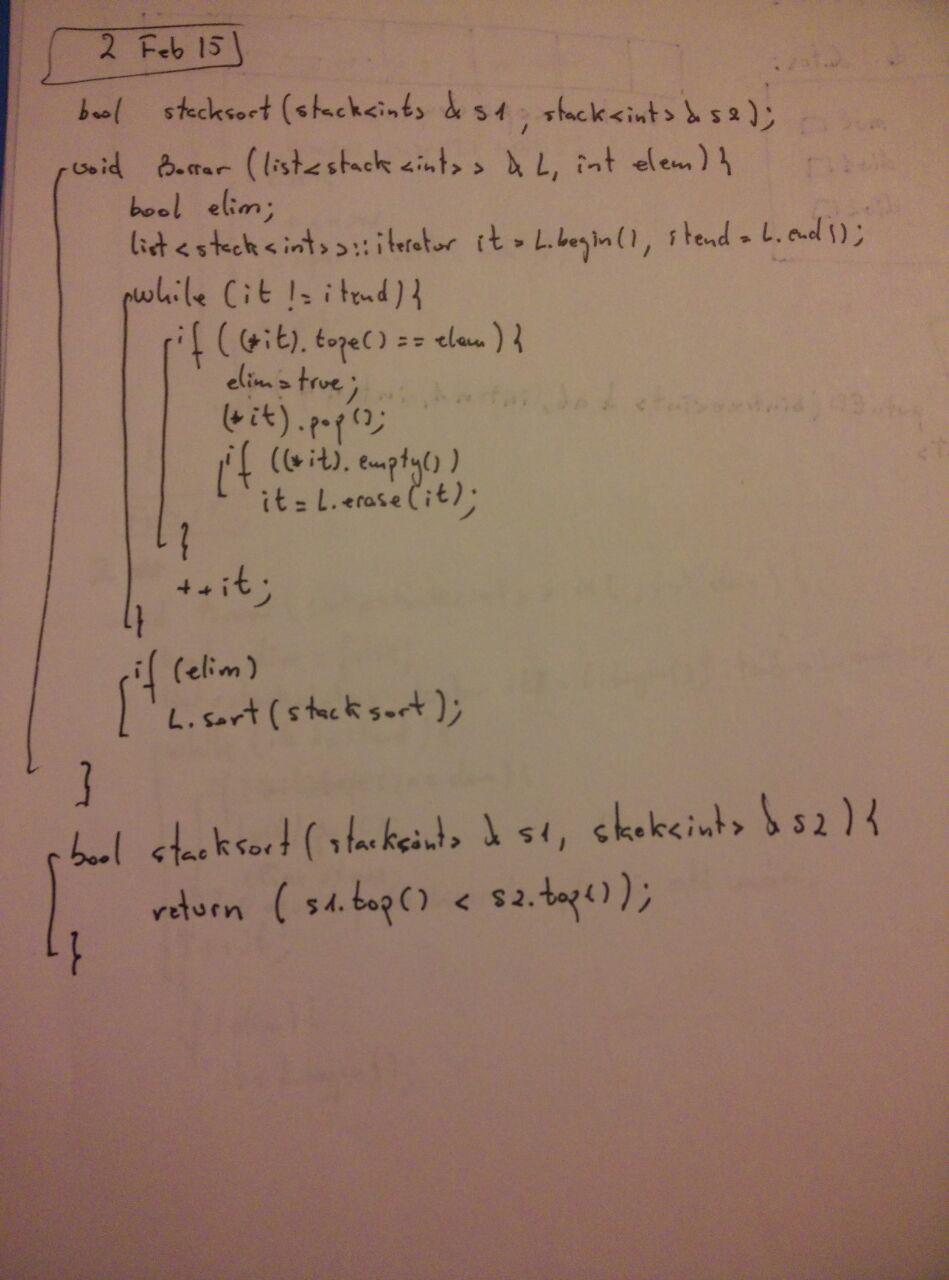 2 Feb 15
bool stacksort (stack<int> & s1, stack<int> & s2);
void Borrar (list<stack<int>> & L, int elem) {
bool elim;
list<stack<int>>::iterator it = L.begin(), itend = L.end();
while (it != itend) {
if ((*it).tope() == elem) {
elim = true;
(*it).pop();
if ((*it).empty())
it = L.erase(it);
}
++it;
}
if (elim)
L.sort(stacksort);
}
bool stacksort (stack<int> & s1, stack<int> & s2) {
return (s1.top() < s2.top());
}